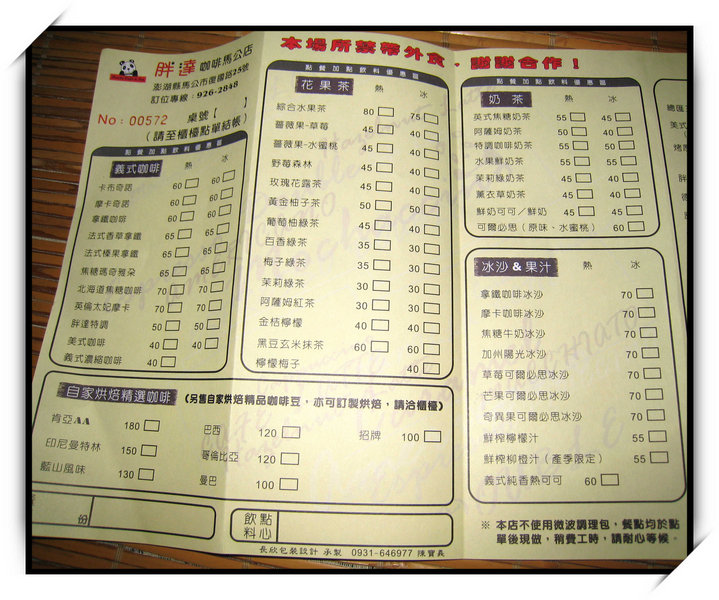 胖達咖啡馬公店
澎湖縣馬公市復國路25號
訂位專線:926-2848
No: 00572 桌號【 】
(請至櫃檯點單結帳)
本場所禁帶外食,謝謝合作!
點餐加點飲料優惠區
義式咖啡 熱 冰
卡布奇諾 60 60
摩卡奇諾 60 60
拿鐵咖啡 60 60
法式香草拿鐵 65 65
法式榛果拿鐵 65 65
焦糖瑪奇雅朵 65 65
北海道焦糖咖啡 70 70
英倫太妃摩卡 70 70
胖達特調 50 50
美式咖啡 40 40
義式濃縮咖啡 40
點餐加點飲料優惠區
花果茶 熱 冰
綜合水果茶 80 75
薔薇果-草莓 45 40
薔薇果-水蜜桃 45 40
野莓森林 45 40
玫瑰花露茶 45 40
黃金柚子茶 50 50
葡萄柚綠茶 45 40
百香綠茶 35 30
梅子綠茶 35 30
茉莉綠茶 35 30
阿薩姆紅茶 35 30
金桔檸檬 40 40
黑豆玄米抹茶 60 60
檸檬梅子 40
點餐加點飲料優惠區
奶茶 熱 冰
英式焦糖奶茶 55 55
阿薩姆奶茶 50 50
特調咖啡奶茶 55 55
水果鮮奶茶 55 55
茉莉綠奶茶 45 40
薰衣草奶茶 50 50
鮮奶可可/鮮奶 45 45
可爾必思(原味、水蜜桃) 60
冰沙&果汁 熱 冰
拿鐵咖啡冰沙 70
摩卡咖啡冰沙 70
焦糖牛奶冰沙 70
加州陽光冰沙 70
草莓可爾必思冰沙 70
芒果可爾必思冰沙 70
奇異果可爾必思冰沙 70
鮮榨檸檬汁 55
鮮榨柳橙汁(產季限定) 55
義式純香熱可可 60
自家烘焙精選咖啡 (另售自家烘焙精品咖啡豆,亦可訂製烘焙,請洽櫃檯)
肯亞AA 180 巴西 120 招牌 100
印尼曼特林 150 哥倫比亞 120
藍山風味 130 曼巴 100
份
飲料
點心
※本店不使用微波調理包,餐點均於點
單後現做,稍費工時,請耐心等候。
長欣包裝設計 承製 0931-646977 陳寶義